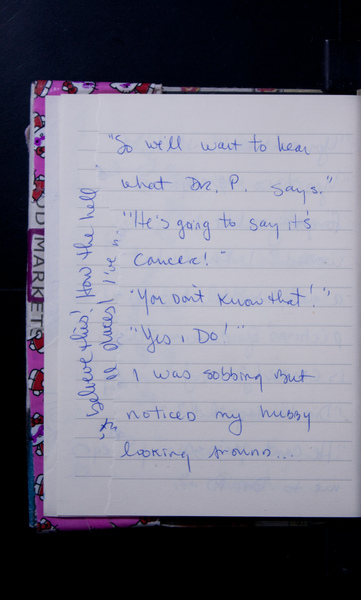 "So we'll want to hear
what Dr. P. says."
"He's going to say it's
cancer!"
"You don't know that!"
"Yes, I Do!"
I was sobbing but
noticed my hubby
looking around...
believe this! How the hell
places! I've in
D MARKET